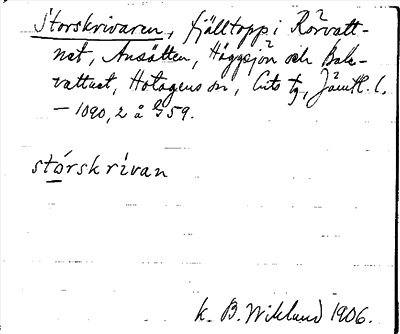 Storskrivaren, fjälltopp i Rörvatt-
net, Ansätten, Häggsjön och Bale-
vattnet, Hotagens sn, Lits tg, Jämtl. l.
— 1090,2 å G59.
stórskrívan
K. B. Wiklund 1906.